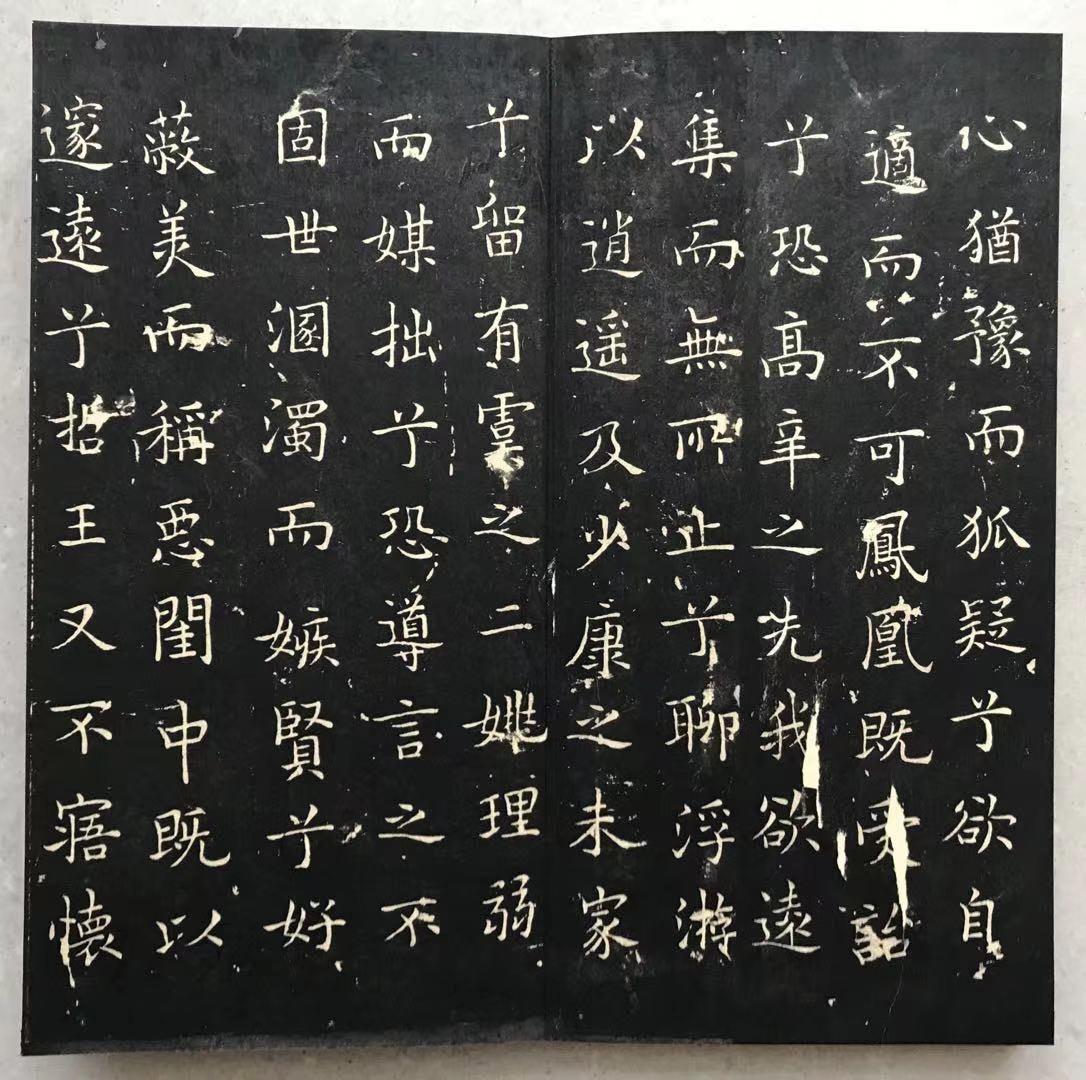 心猶豫而狐疑兮欲自
適而不可鳳凰既受詒
兮恐髙辛之先我欲遠
集而無所止兮聊浮游
以逍遥及少康之未家
兮留有虞之二姚理弱
而媒拙兮恐導言之不
固世溷濁而嫉賢兮好
蔽美而稱惡閨中既以
邃遠兮哲王又不寤懷